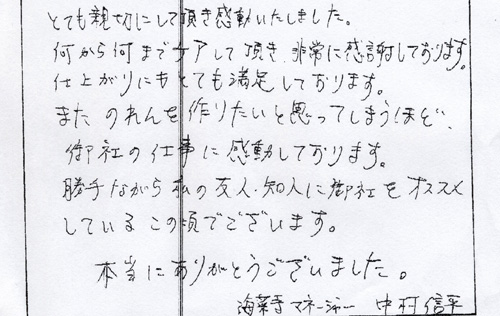 とても親切にして頂き感動いたしました。
何から何までケアして頂き、非常に感謝しております。
仕上がりにもとても満足しております。
また のれんを作りたいと思ってしまうほど、
御社の仕事に感動しております。
勝手ながら私の友人・知人に御社をオススメ
しているこの頃でございます。
本当にありがとうございました。
マネージャー 中村信平